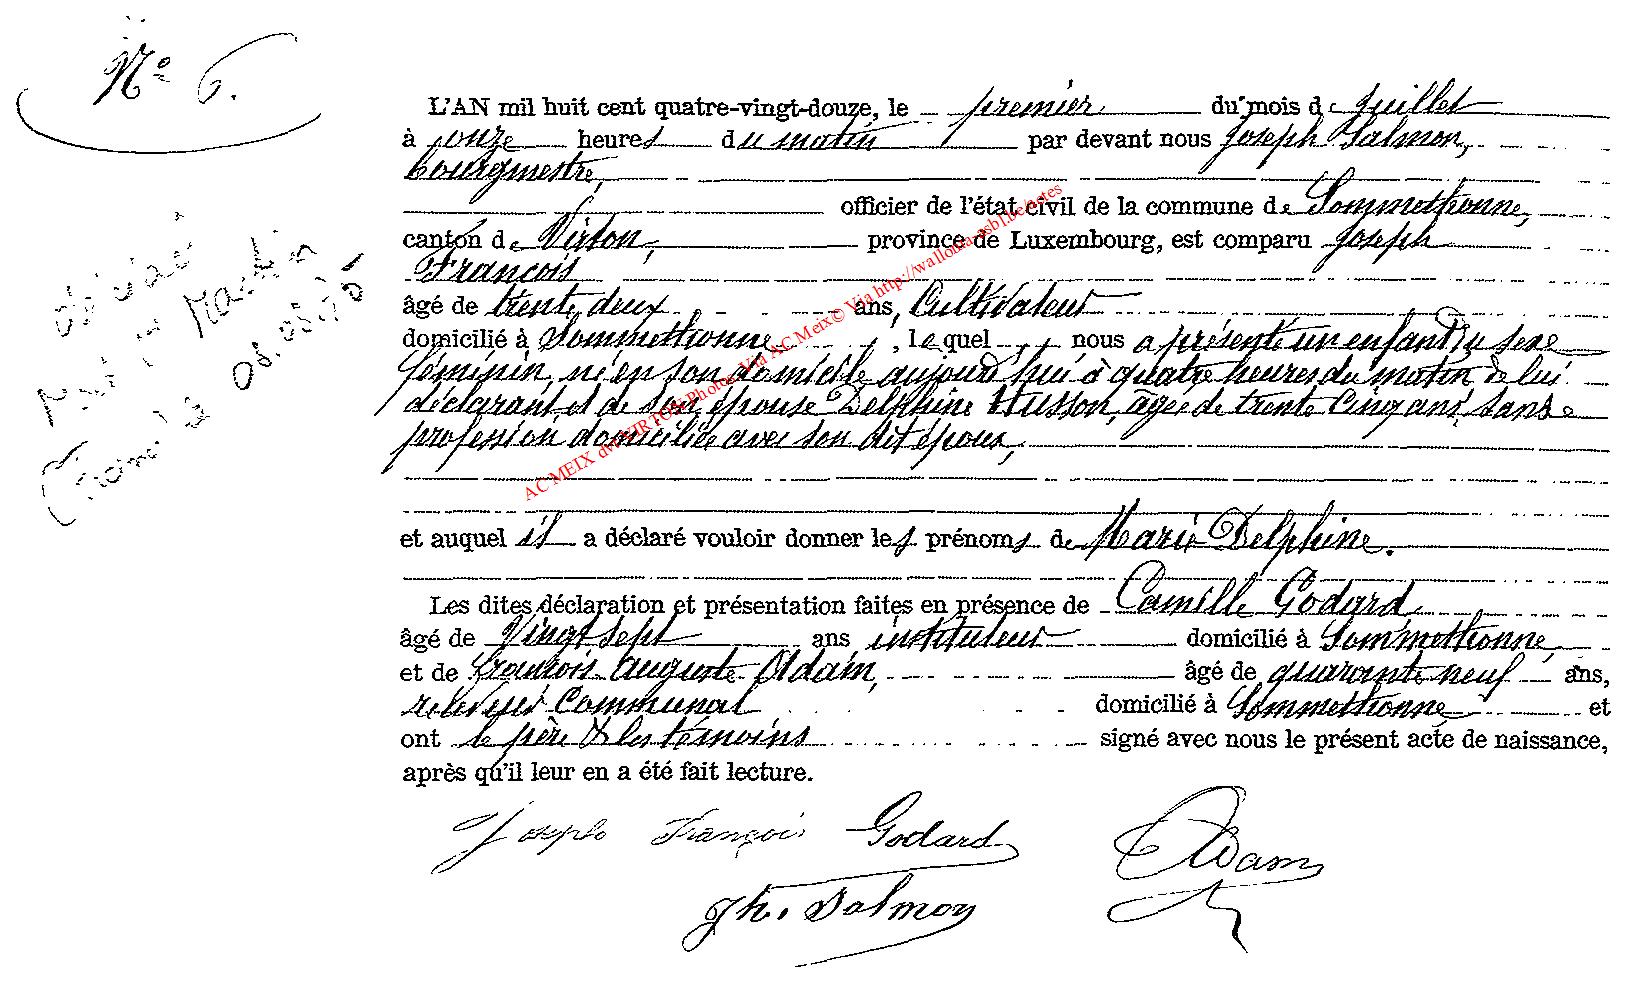 No 6.
L'AN mil huit cent quatre-vingt-douze, le premier du mois de juillet
à onze heures du matin par devant nous Joseph Salmon,
bourgmestre,
officier de l'état civil de la commune de Sommethonne,
canton de Virton, province de Luxembourg, est comparu Joseph
François
âgé de trente deux ans, Cultivateur
domicilié à Sommethonne, lequel nous a présenté un enfant du sexe
féminin, né en son domicile aujourd'hui à quatre heures du matin de lui
déclarant et de son épouse Delphine Husson, âgée de trente cinq ans, sans
profession domiciliée avec son dit époux,
et auquel il a déclaré vouloir donner les prénoms de Marie Delphine.
Les dites déclaration et présentation faites en présence de Camille Godard
âgé de Vingt sept ans instituteur domicilié à Sommethonne,
et de François Auguste Adam, âgé de quarante neuf ans,
receveur Communal domicilié à Sommethonne et
ont le père & les témoins signé avec nous le présent acte de naissance,
après qu'il leur en a été fait lecture.
Joseph François Godard Adam
Jh. Salmon
décédé
Martin
AC MEIX dvt VIRTON Photos Via AC Meix© Via http://wallonia-asbl.be/notes